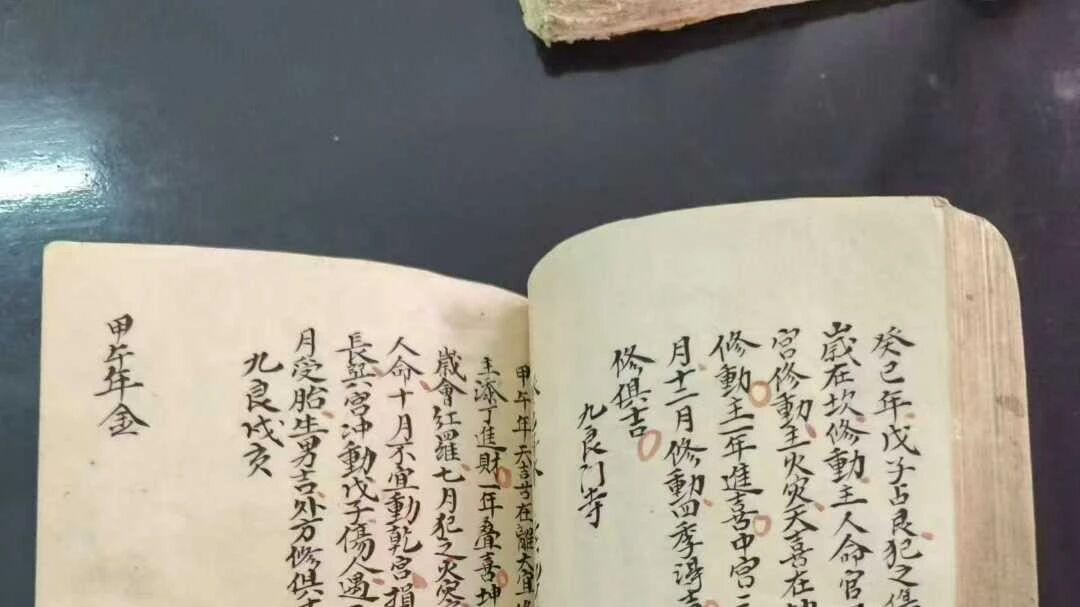 癸巳年戊子占艮犯之傷
歲在坎修動主人命官
宮修動主火灾天喜在坤
修動主一年進喜中宮二
月十二月修動四季得吉
修俱吉
九良門寺
甲午年天吉苛在離大宜
主添丁進財一年叠喜坤
歲會紅羅七月犯之火灾
人命十月不宜動乾宮損
長巽宮冲動戊子傷人遇
月受胎生男吉处方修俱吉
九良戌亥
甲午年金